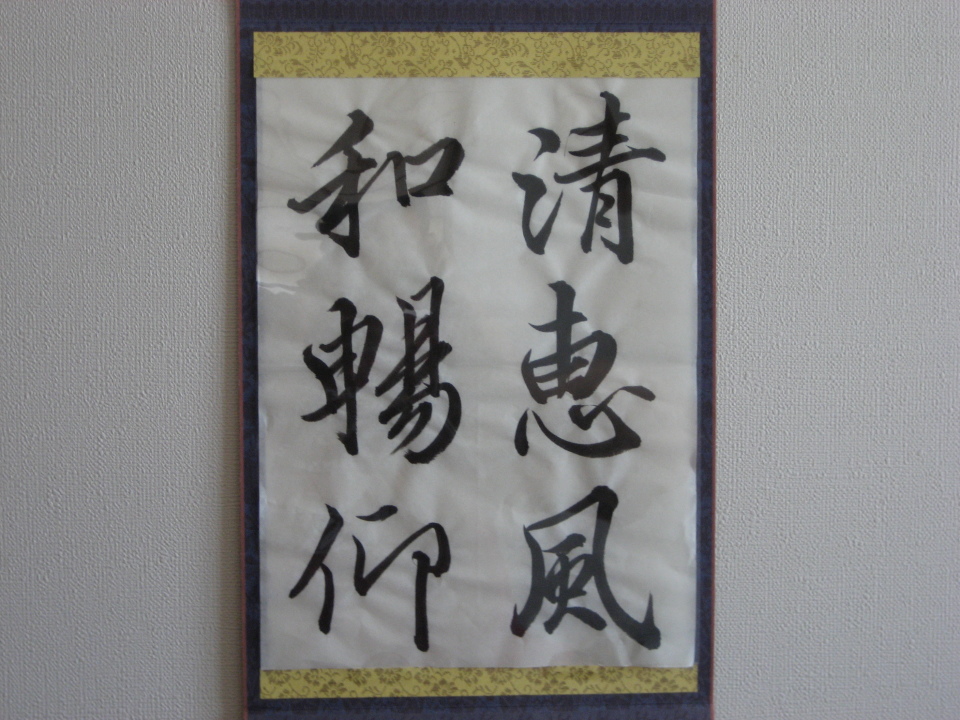 清恵風
和暢仰